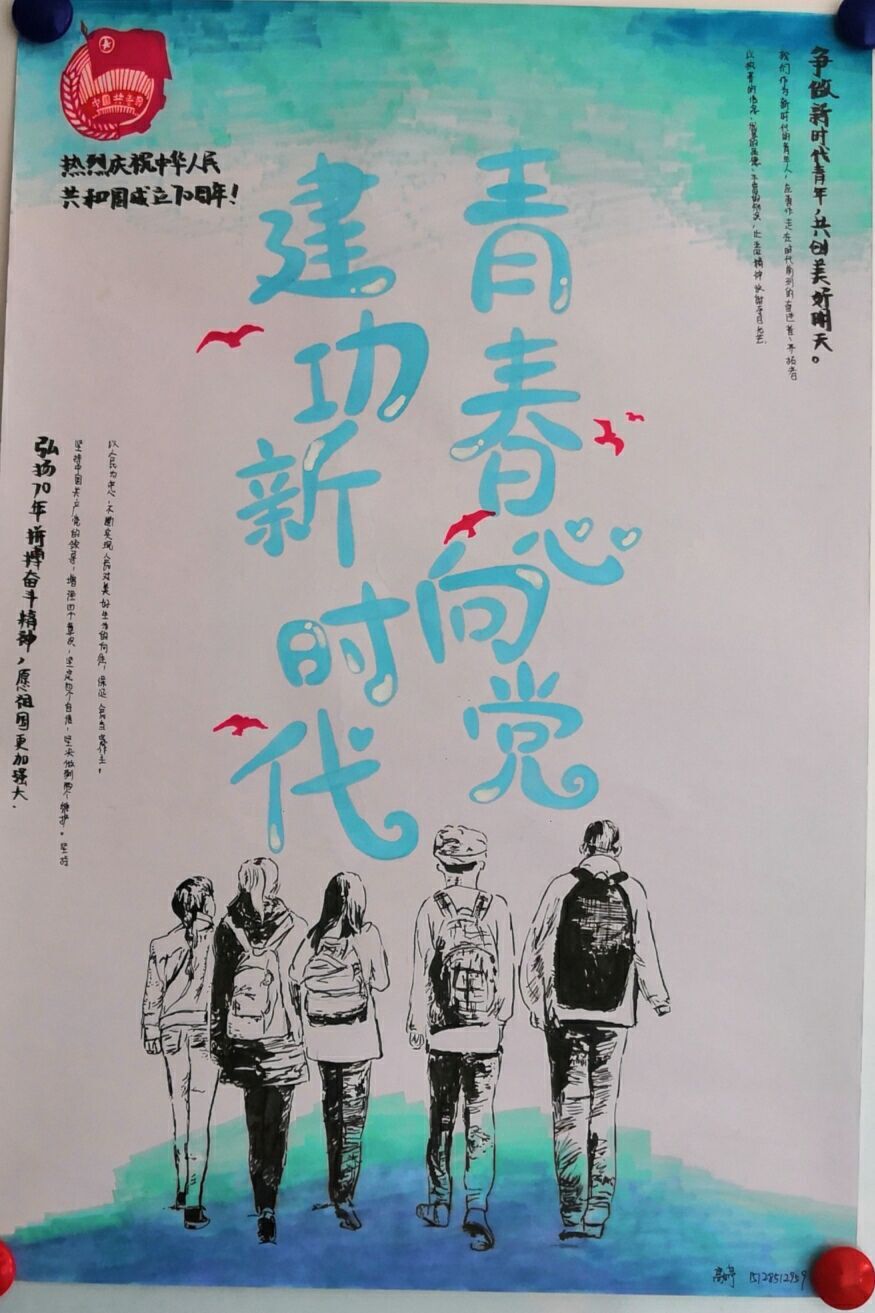 中国共青团
热烈庆祝中华人民
共和国成立70周年！
青春心向党
建功新时代
争做新时代青年，共创美好明天。
我们作为新时代的青年人，应勇作走在时代前列的奋进者、开拓者
以执着的信念、
弘扬70年拼搏奋斗精神，愿祖国更加强大.
坚持中国共产党的领导，增强四个意识，坚定四个自信，坚决做到两个维护。坚持
以人民为中心，不断实现人民对美好生活的向往，保证人民当家作主，
高婷 15128512959